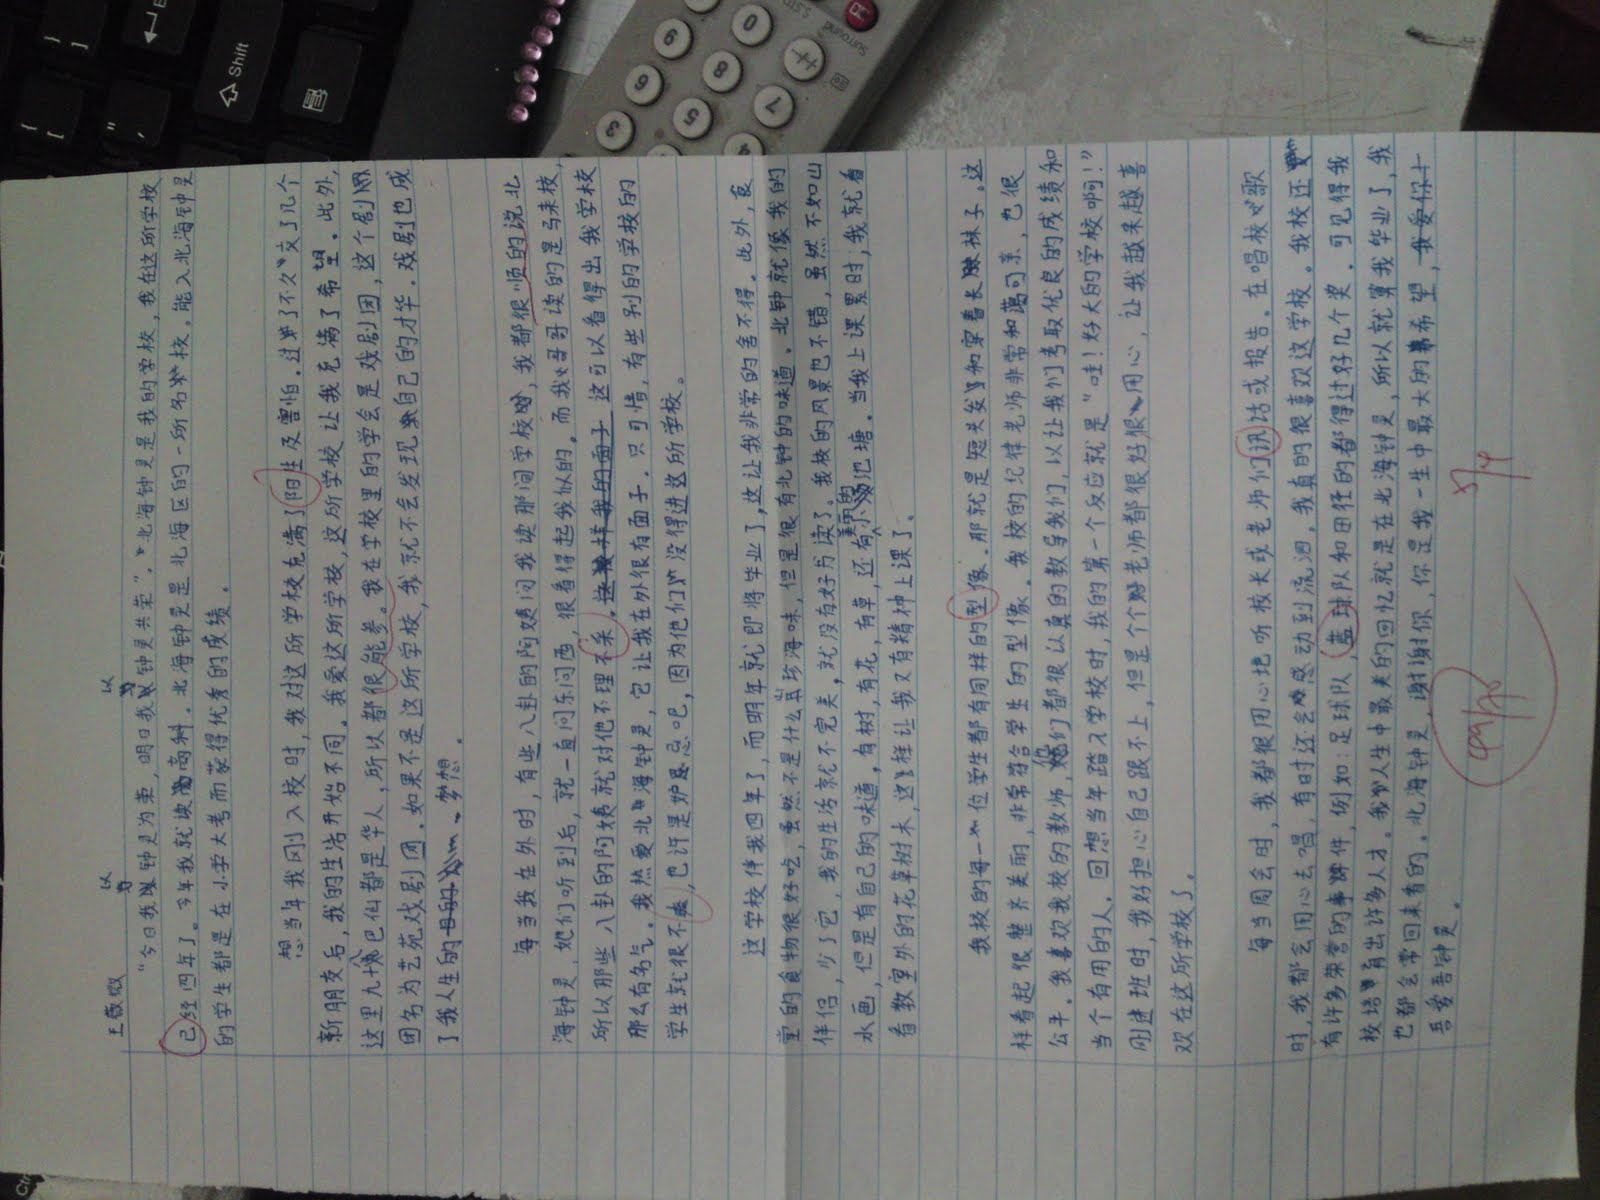 王薇微
“今日我以钟灵为荣，明日我以钟灵共荣”。北海钟灵是我的学校，我在这所学校
已经四年了。今年我就读高科。北海钟灵是北海区的一所名校。能入北海钟灵
的学生都是在小学大考而蒙得优秀的成绩。
想当年我刚入校时，我对这所学校充满了陌生及害怕。过了不久，交了几个
新朋友后，我的生活开始不同。我爱这所学校，这所学校让我充满了希望。此外，
这里九十八巴仙都是华人，所以都很能参。我在学校里的学会是戏剧团，这个剧
团名为艺苑戏剧团。如果不是这所学校，我就不会发现自己的才华。戏剧也成
了我人生的梦想。
每当我在外时，有些八卦的阿姨问我读那间学校，我都很顺的说北
海钟灵，她们听到后，就一直问东问西，很看得起我似的。而我哥哥读的是马来校，
所以那些八卦的阿姨就对他不理不采。这可以看得出我学校
那么有名气。我热爱北海钟灵，它让我在外很有面子。只可惜，有些别的学校的
学生就很不爽，也许是妒忌吧，因为他们没得进这所学校。
这学校伴我四年了，而明年就即将毕业了，这让我非常的舍不得。此外，食
堂的食物很好吃，虽然不是什么山珍海味，但是很有北钟的味道。北钟就像我的
伴侣，少了它，我的生活就不完美，就没有好书读了。我校的风景也不错，虽然不如山
水画，但是有自己的味道，有树，有花，有草，还有美丽的小池塘。当我上课累时，我就看
看教室外的花草树木，这样让我又有精神上课了。
我校的每一位学生都有同样的型像。那就是短发和穿着长袜子。这
样看起很整齐美丽，非常符合学生的型像。我校的纪律老师非常和蔼可亲，也很
公平。我喜欢我校的教师，他们都很认真的教导我们，以让我们考取优良的成绩和
当个有用的人。回想当年踏入学校时，我的第一个反应就是“哇！好大的学校啊！”
刚进班时，我好担心自己跟不上，但是个个老师都很好很用心，让我越来越喜
欢在这所学校了。
每当周会时，我都很用心地听校长或老师们讯话或报告。在唱校歌
时，我都会用心去唱，有时还会感动到流泪，我真的很喜欢这学校。我校还
有许多荣誉的事件，例如：足球队，蓝球队和田径的都得过好几个奖。可见得我
校培育出许多人才。我人生中最美的回忆就是在北海钟灵，所以就算我毕业了，我
也都会常回来看的。北海钟灵，谢谢你，你是我一生中最大的希望，
吾爱吾钟灵。
Shift